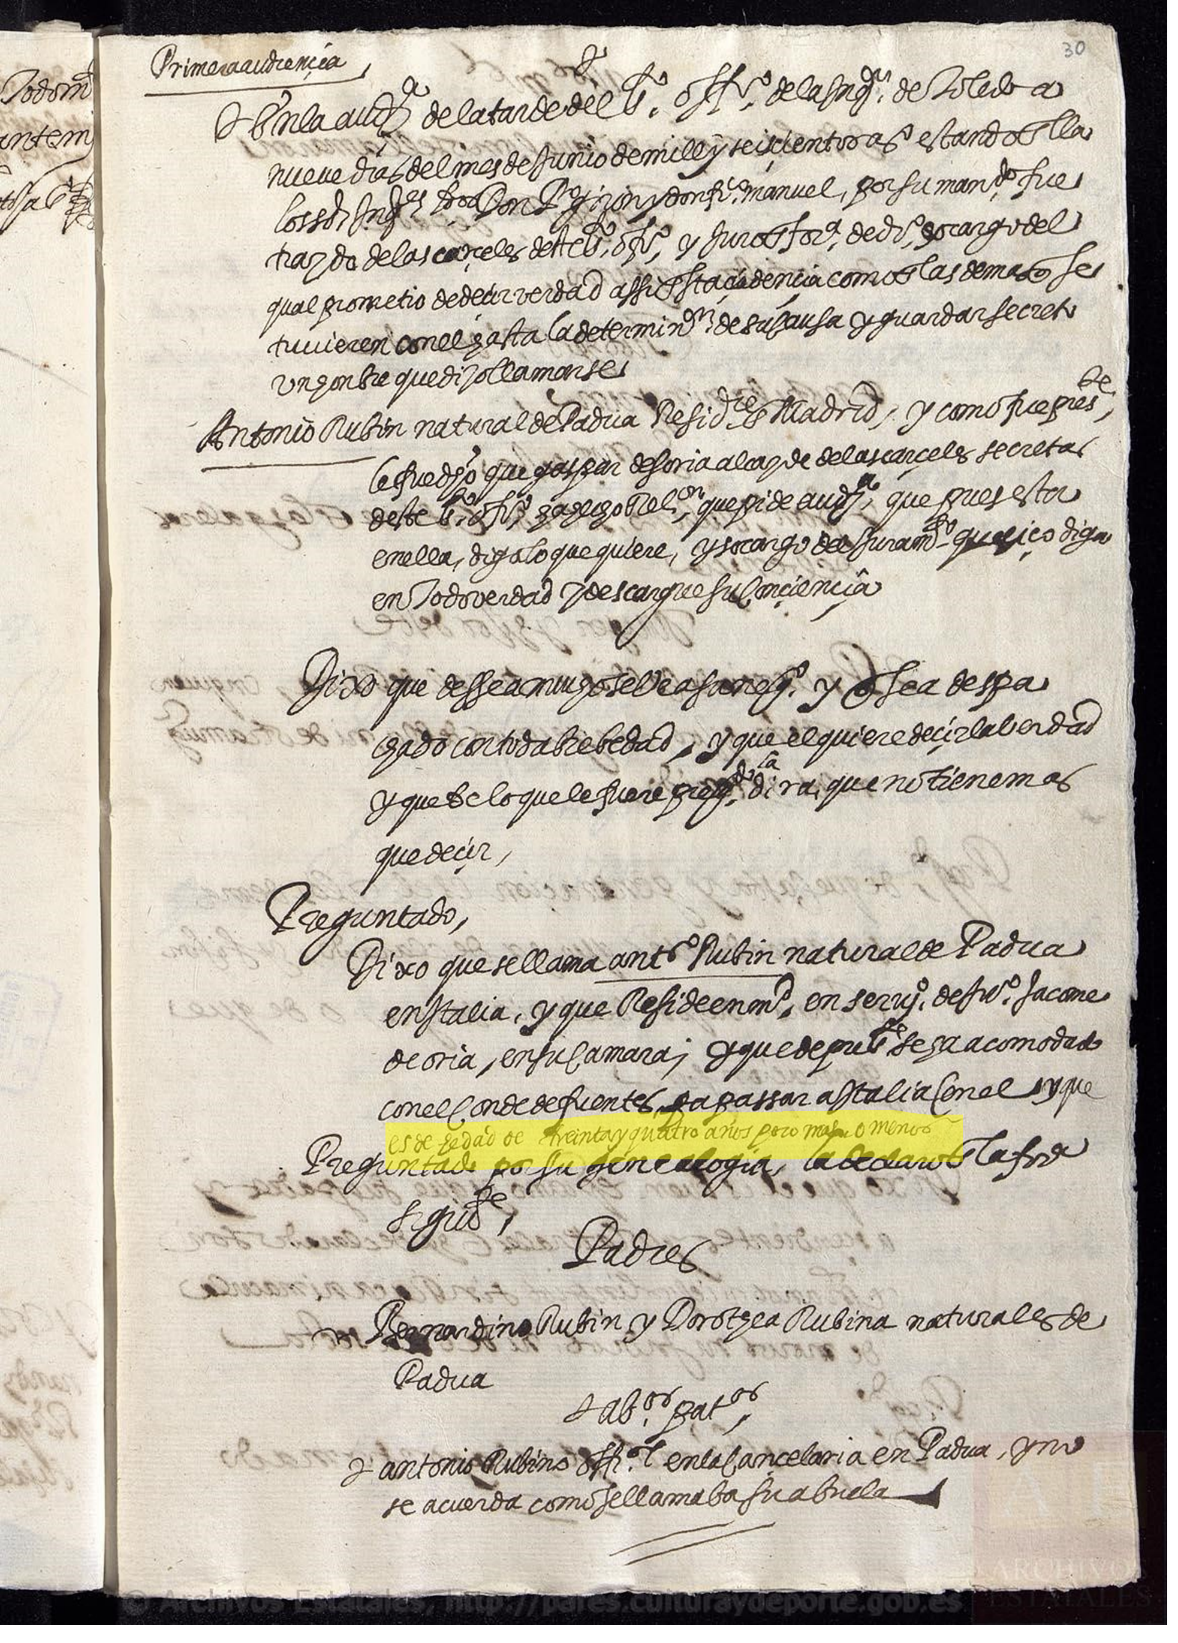 30
Primera audiencia
En la aud.a de la tarde del s.to off.o de la Inq.on de Toledo a
nueve dias del mes de Junio de mill y seiscientos as.o estando en ella
los s.res Inq.res Don y don fr.co manuel, por su man.do fue
traydo de las carçeles deste s.to off.o, y juro en for.a de d.ro so cargo del
qual prometio de deçir verdad assi en esta audiencia como en las demas q se
tuvieren con el hasta la determin.on de su causa y guardar secreto
un honbre que dixo llamarse
Antonio Rubin natural de Padua Resid.te en Madrid, y como fue pres.te
le fue d.ho que gaspar de soria alcayde de las carçeles secretas
deste s.to off.o ha hecho Rel.on que pide aud.a, que pues esta
en ella, diga lo que quiere, y so cargo del juram.to que hiço diga
en todo verdad y descargue su conçiençia
Dixo que dessea mucho se vea su neg.o y sea despa
chado con toda brebedad, y que el quiere deçir la verdad
y que de lo que le fuere preg.do la dira, que no tiene mas
que deçir,
Preguntado,
Dixo que se llama ant.o Rubin natural de Padua
en Italia, y que Reside en m.d, en serui.o de Ju.o Jacome
de oria, en su camara; y que depres.te se ha acomodado
con el Conde de fuentes, pa passar a Italia con el y que
es de hedad de treinta y quatro años poco mas o menos
Preguntado por su genealogia, la declaro en la for.a
sigui.te,
Padres
Bernardino Rubin y Dorothea Rubina naturales de
Padua
ab.os pat.os
antonio Rubino offi.al en la Cançelaria en Padua, y no
se acuerda como se llamaba su abuela
© Archivos Estatales, http://pares.culturaydeporte.gob.es
ARCHIVOS
ESTATALES